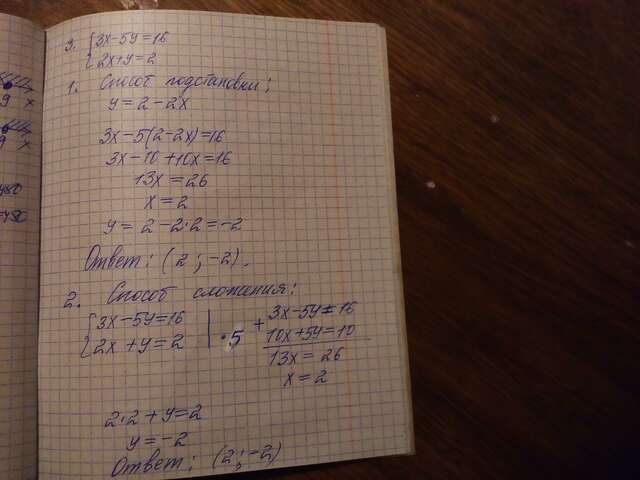 9. {3x-5y=16
{2x+y=2
1. Способ подстановки:
y=2-2x
3x-5(2-2x)=16
3x-10+10x=16
13x=26
x=2
y=2-2·2=-2
Ответ: (2;-2).
2. Способ сложения:
{3x-5y=16
{2x+y=2 | ·5
+ 3x-5y=16
10x+5y=10
13x=26
x=2
2·2+y=2
y=-2
Ответ: (2;-2)